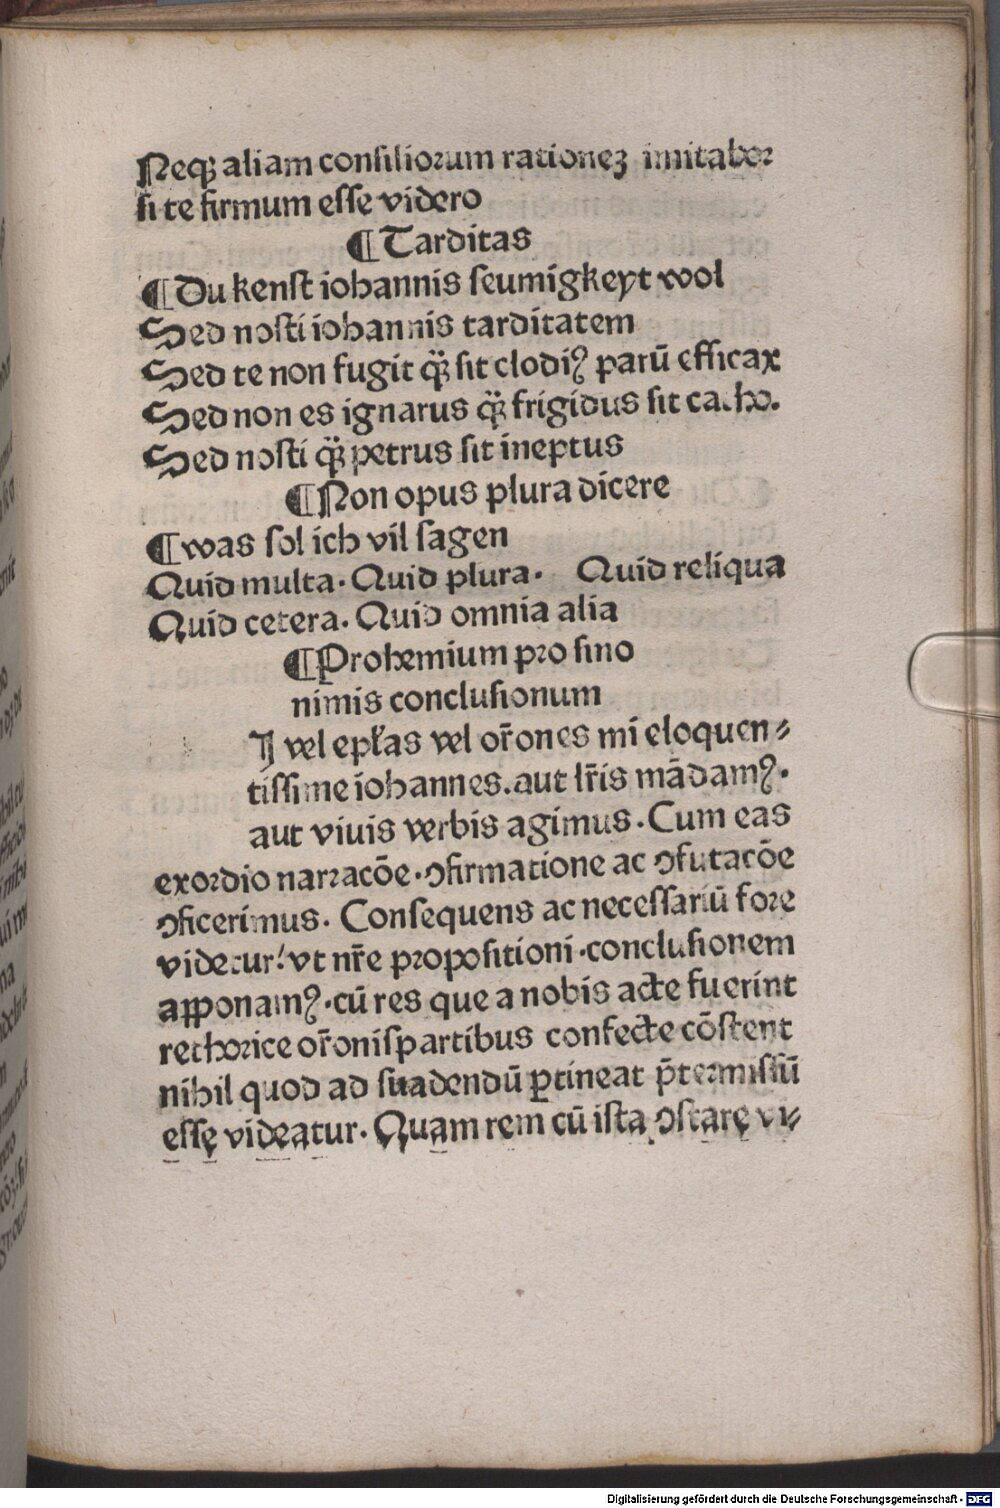 Neqꝫ aliam consiliorum rationeꝫ imitabor
si te firmum esse videro
¶ Tarditas
¶ Du kenst iohannis seumigkeyt wol
Sed nosti iohannis tarditatem
Sed te non fugit qͣꝫ sit clodiꝰ parū efficax
Sed non es ignarus qͣꝫ frigidus sit catho.
Sed nosti qͣꝫ petrus sit ineptus
¶ Non opus plura dicere
¶ was sol ich vil sagen
Quid multa. Quid plura. Quid reliqua
Quid cetera. Quid omnia alia
¶ Prohemium pro sino
nimis conclusionum
I vel epl̄as vel or̄ones mi eloquen⸗
tissime iohannes. aut lr̄is mādamꝰ.
aut viuis verbis agimus. Cum eas
exordio narracōe. ꝯfirmatione ac ꝯfutacōe
ꝯficerimus. Consequens ac necessariū fore
videtur! vt nr̄e propositioni. conclusionem
apponamꝰ. cū res que a nobis acte fuerint
rethorice or̄onis partibus confecte cōstent
nihil quod ad suadendū ꝑtineat p̄termissū
esse videatur. Quam rem cū ista ꝯstare vi⸗
Digitalisierung gefördert durch die Deutsche Forschungsgemeinschaft - DFG